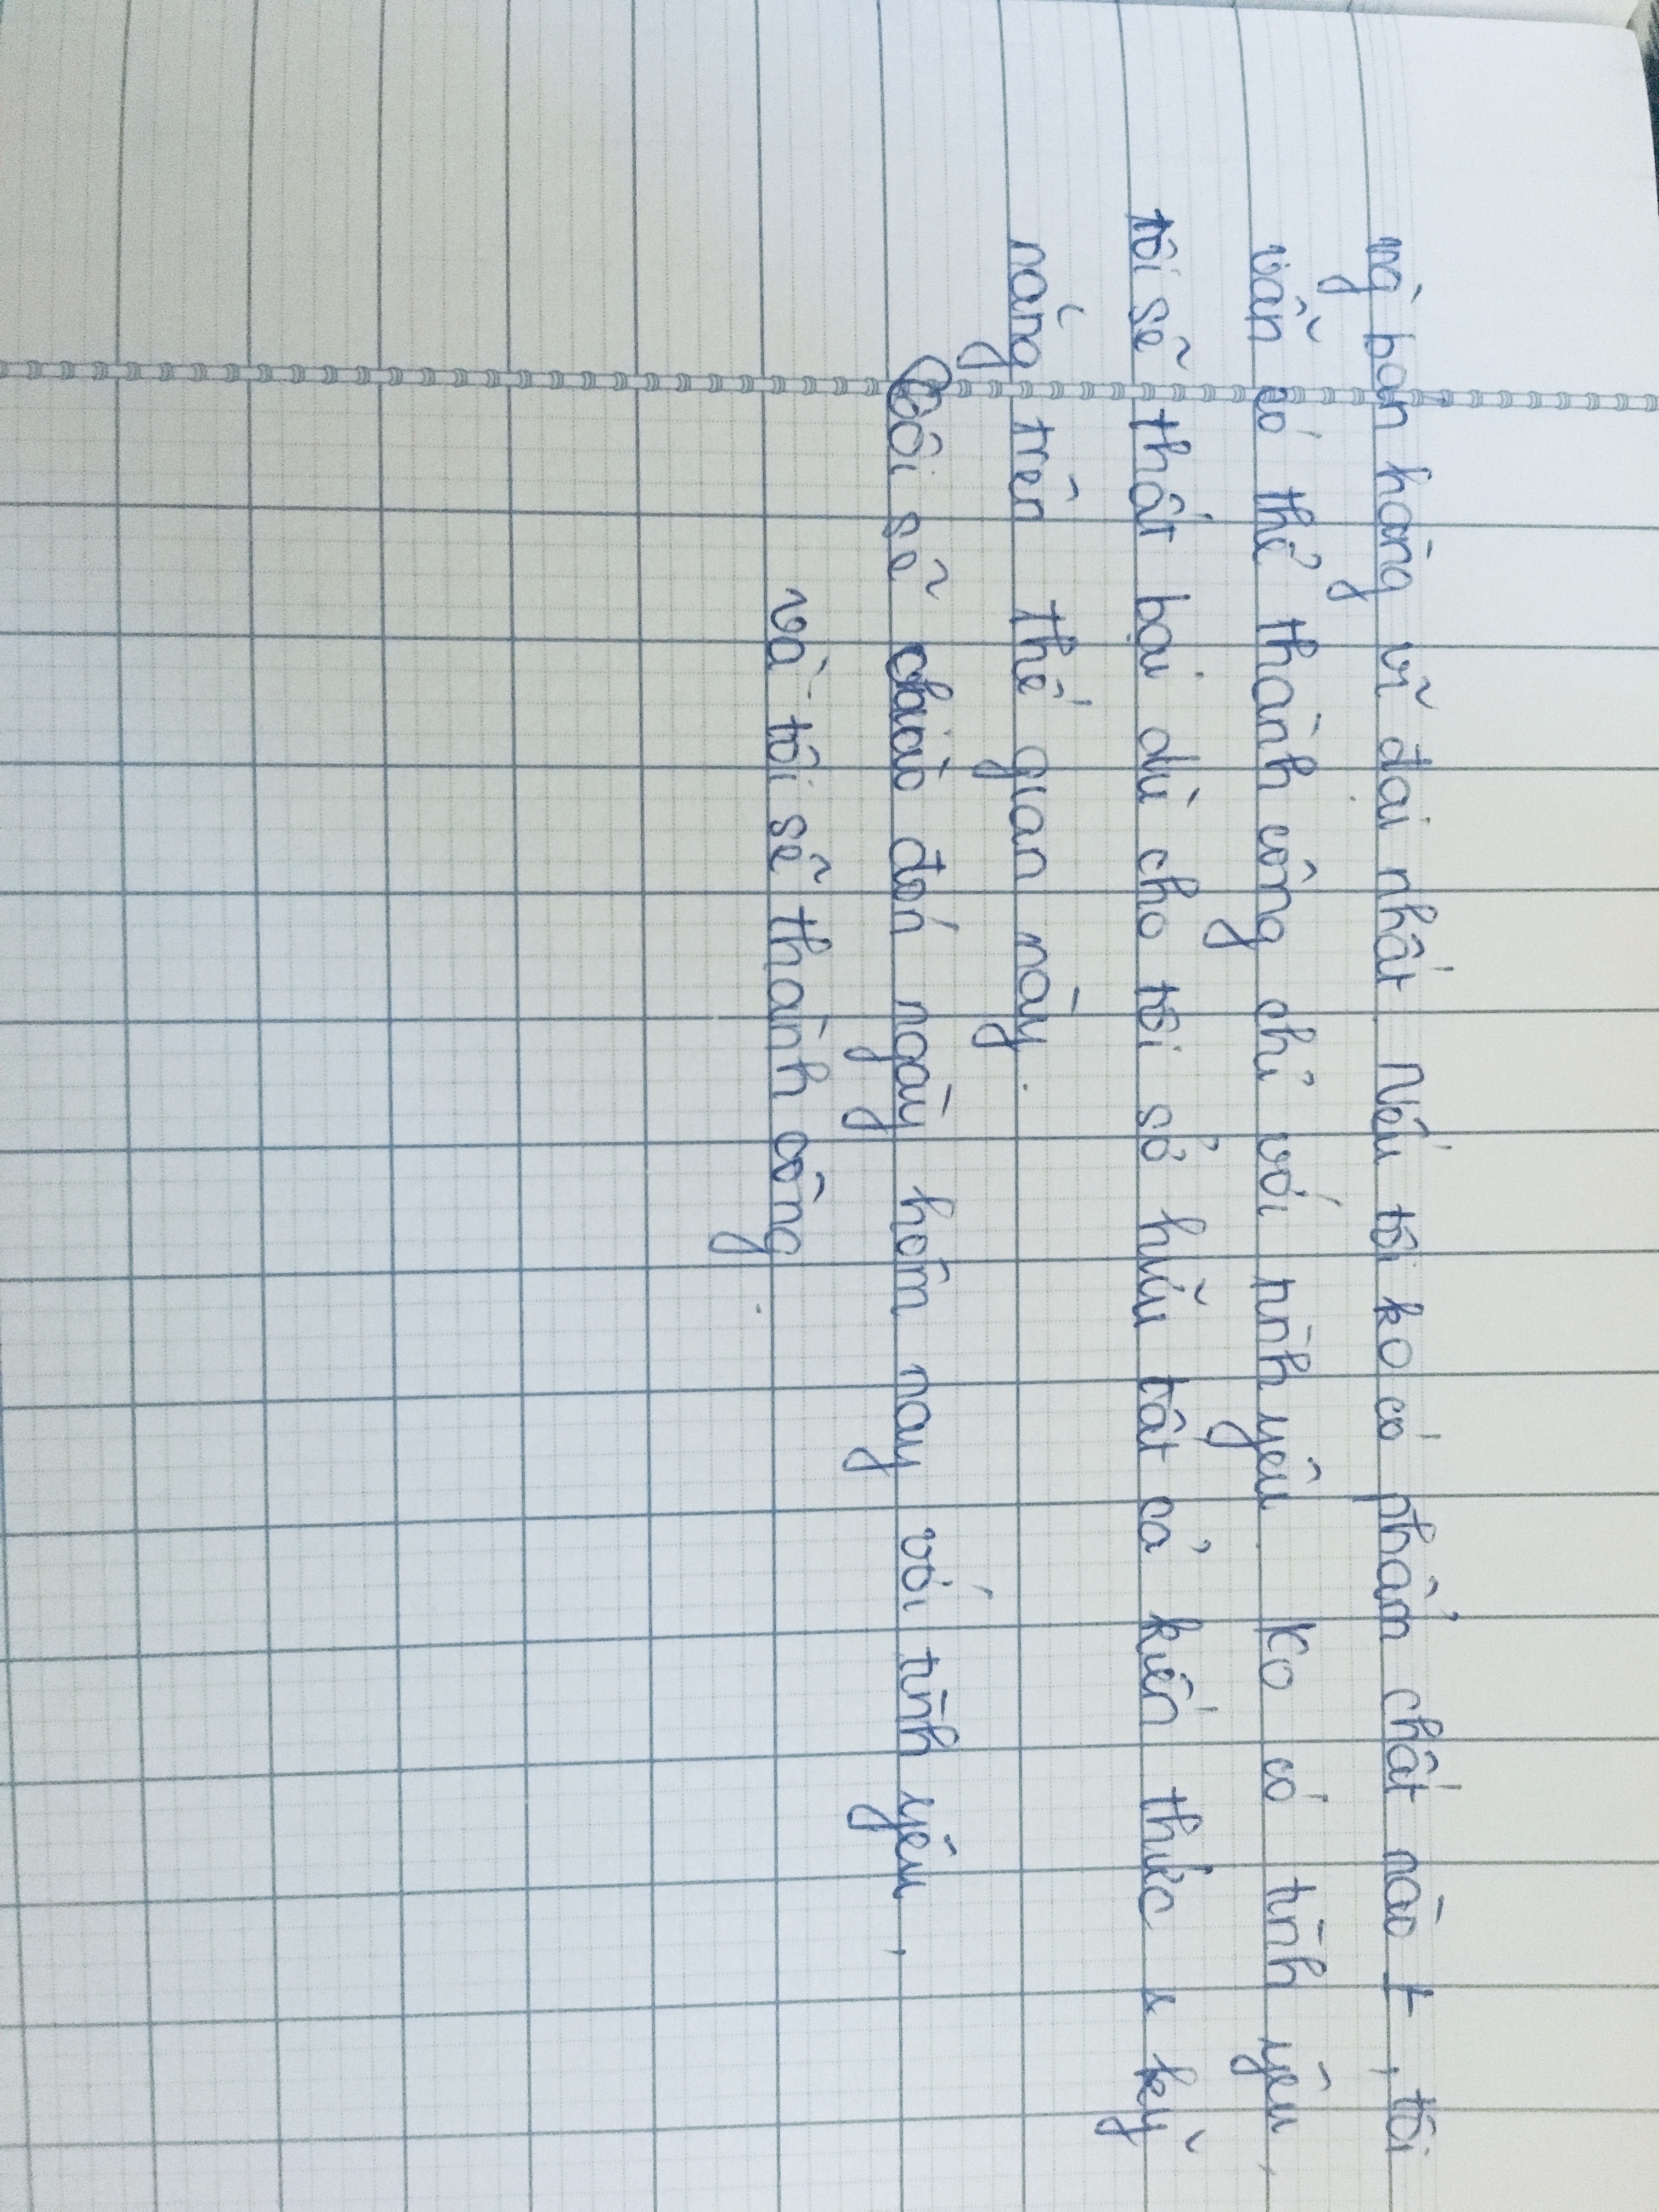 ng bán hàng vĩ đại nhất. Nếu tôi ko có phẩm chất nào ≠, tôi
vẫn có thể thành công chỉ với tình yêu. Ko có tình yêu,
tôi sẽ thất bại dù cho tôi sở hữu tất cả kiến thức & kỹ
năng trên thế gian này.
Tôi sẽ chào đón ngày hôm nay với tình yêu,
và tôi sẽ thành công.